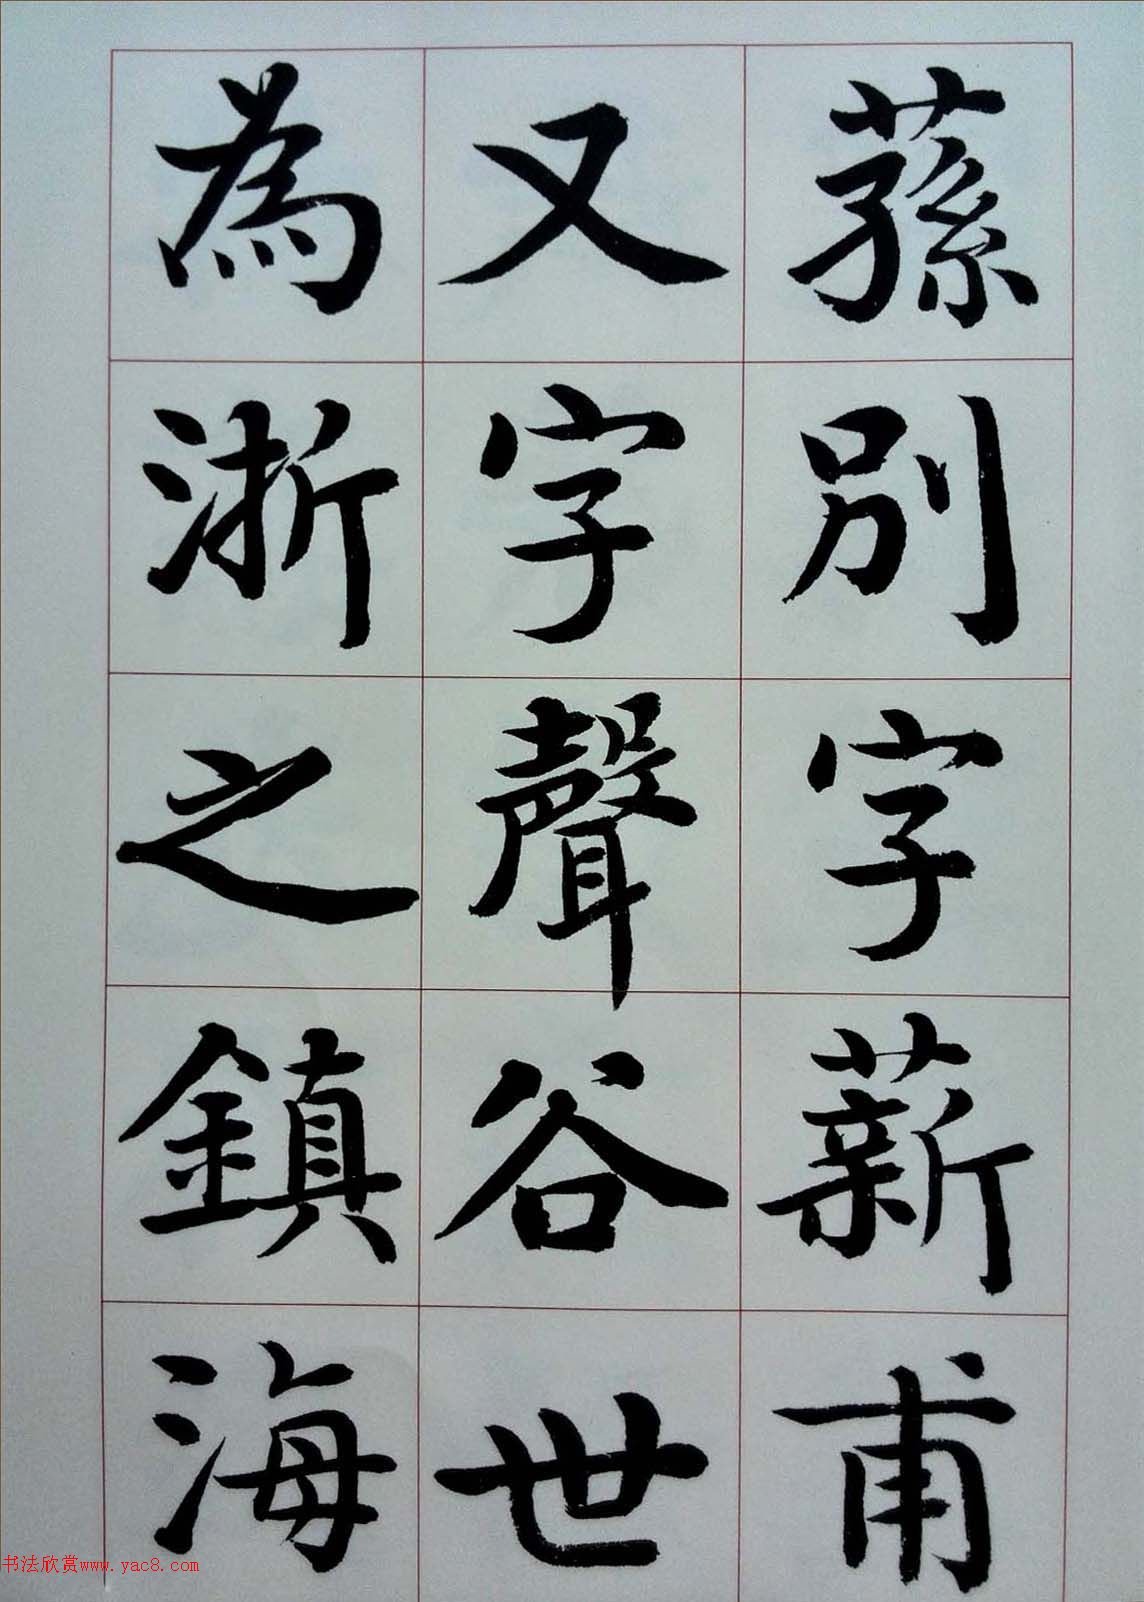 蓀別字薪甫
又字聲谷世
為浙之鎮海
书法欣赏www.yac8.com